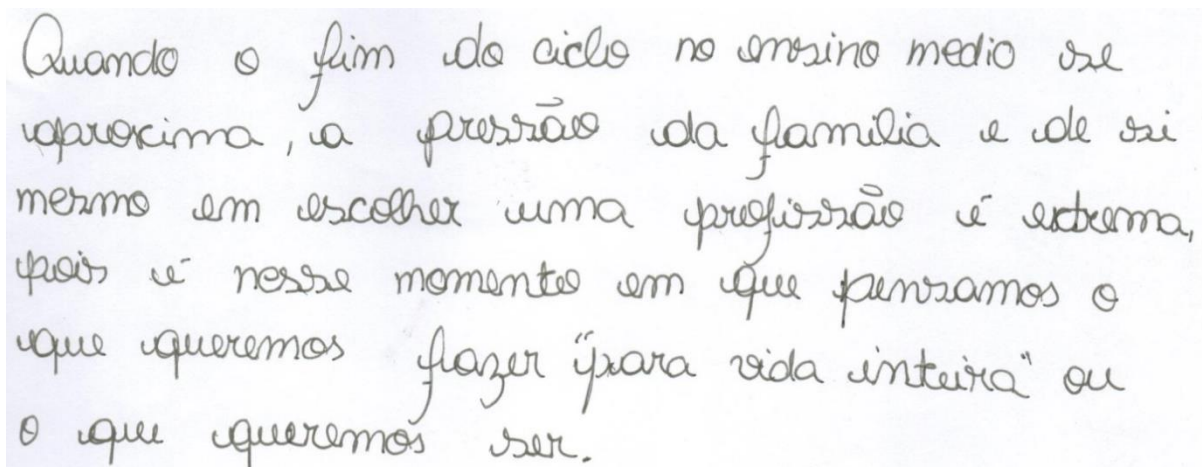 Quando o fim do ciclo no ensino medio se
aproxima, a pressão da familia e de si
mesmo em escolher uma profissão é extrema,
pois é nesse momento em que pensamos o
que queremos fazer "para vida inteira" ou
o que queremos ser.